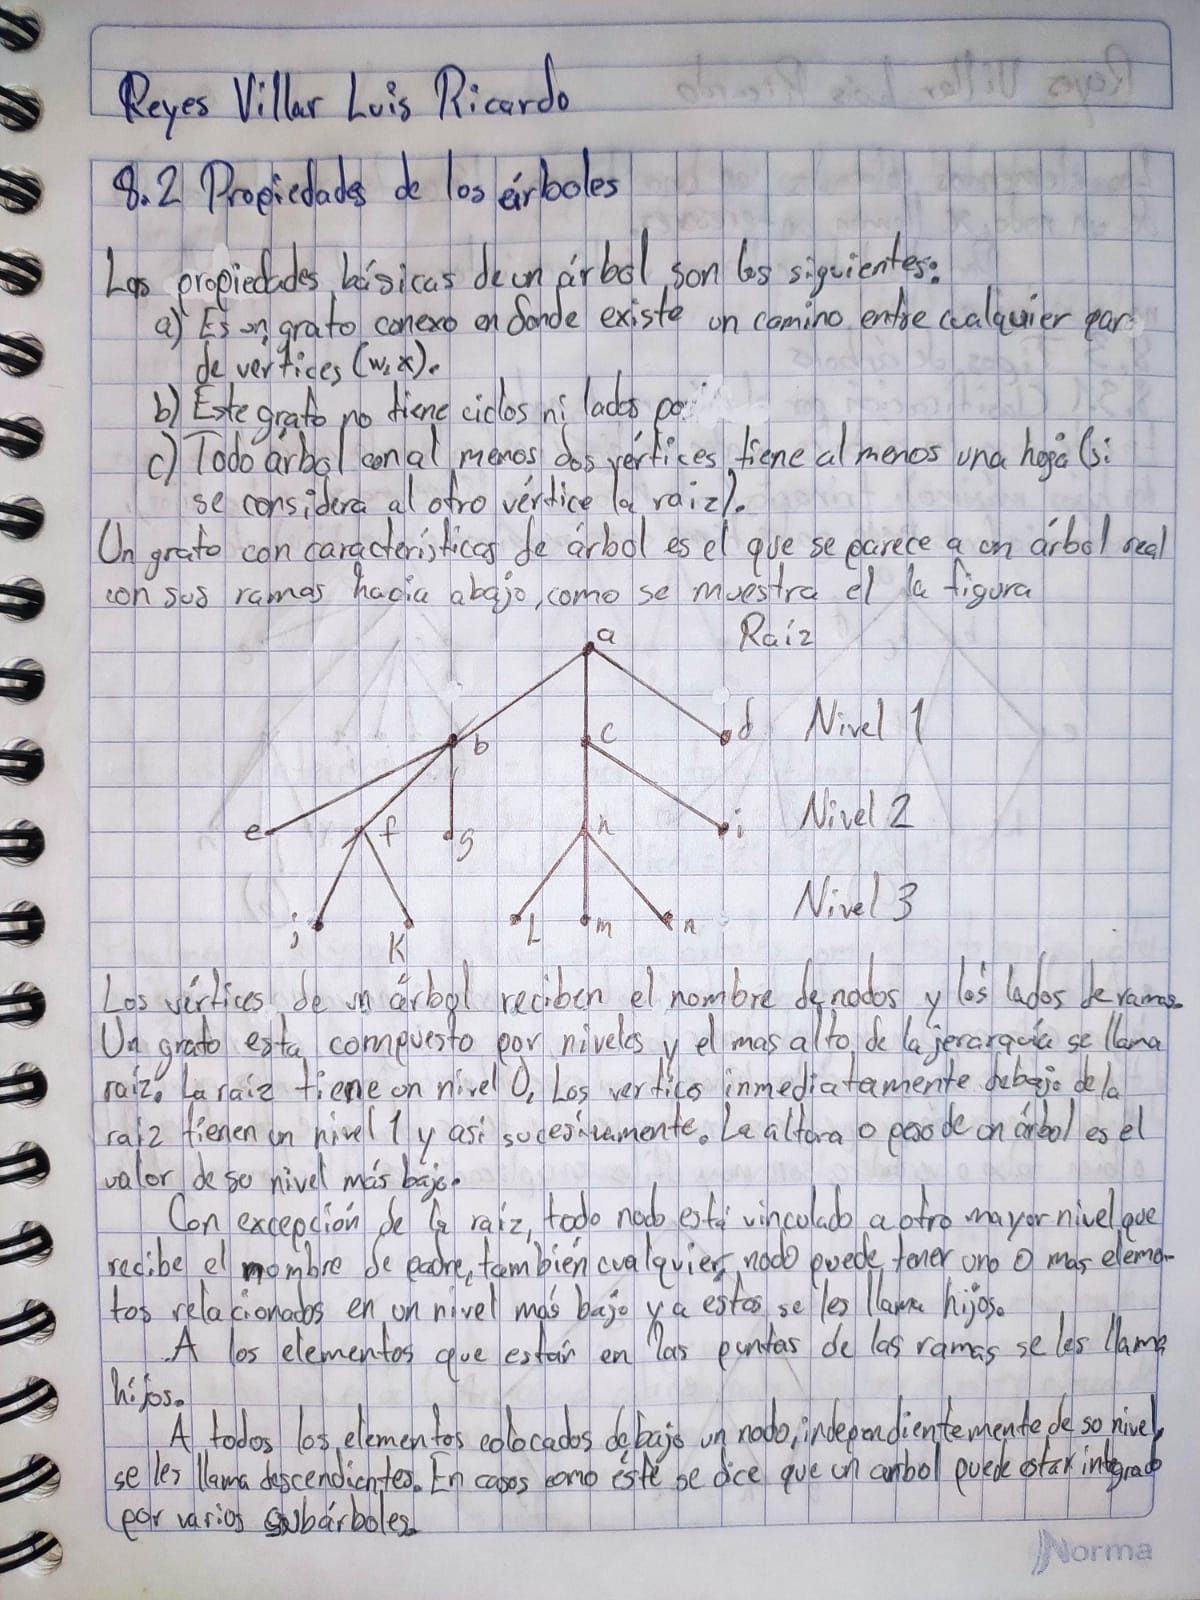 Reyes Villar Luis Ricardo
8.2 Propiedades de los árboles
Las propiedades básicas de un árbol son los siguientes:
a) Es un grafo conexo en donde existe un camino entre cualquier par
de vértices (w,x).
b) Este grafo no tiene ciclos ni lados
c) Todo árbol con al menos dos vértices tiene al menos una hoja (si
se considera al otro vértice la raíz).
Un grafo con características de árbol es el que se parece a un árbol real
con sus ramas hacia abajo, como se muestra el la figura
a Raíz
b c d Nivel 1
e f g h i Nivel 2
j K L m n Nivel 3
Los vértices de un árbol reciben el nombre de nodos y los lados de ramas.
Un grafo esta compuesto por niveles y el mas alto de la jerarquía se llama
raíz. La raíz tiene un nivel 0, Los vertics inmediatamente debajo de la
raiz tienen un nivel 1 y asi sucesivamente. La altura o peso de un árbol es el
valor de su nivel más bajo.
Con excepción de la raíz, todo nodo está vinculado a otro mayor nivel que
recibe el nombre de padre, también cualquier nodo puede tener uno o mas elemen-
tos relacionados en un nivel más bajo y a estos se les llama hijos.
A los elementos que están en las puntas de las ramas se les llama
hijos.
A todos los elementos colocados debajo un nodo, independientemente de su nivel,
se les llama descendientes. En casos como éste se dice que un arbol puede estar integrado
por varios subárboles.
Norma